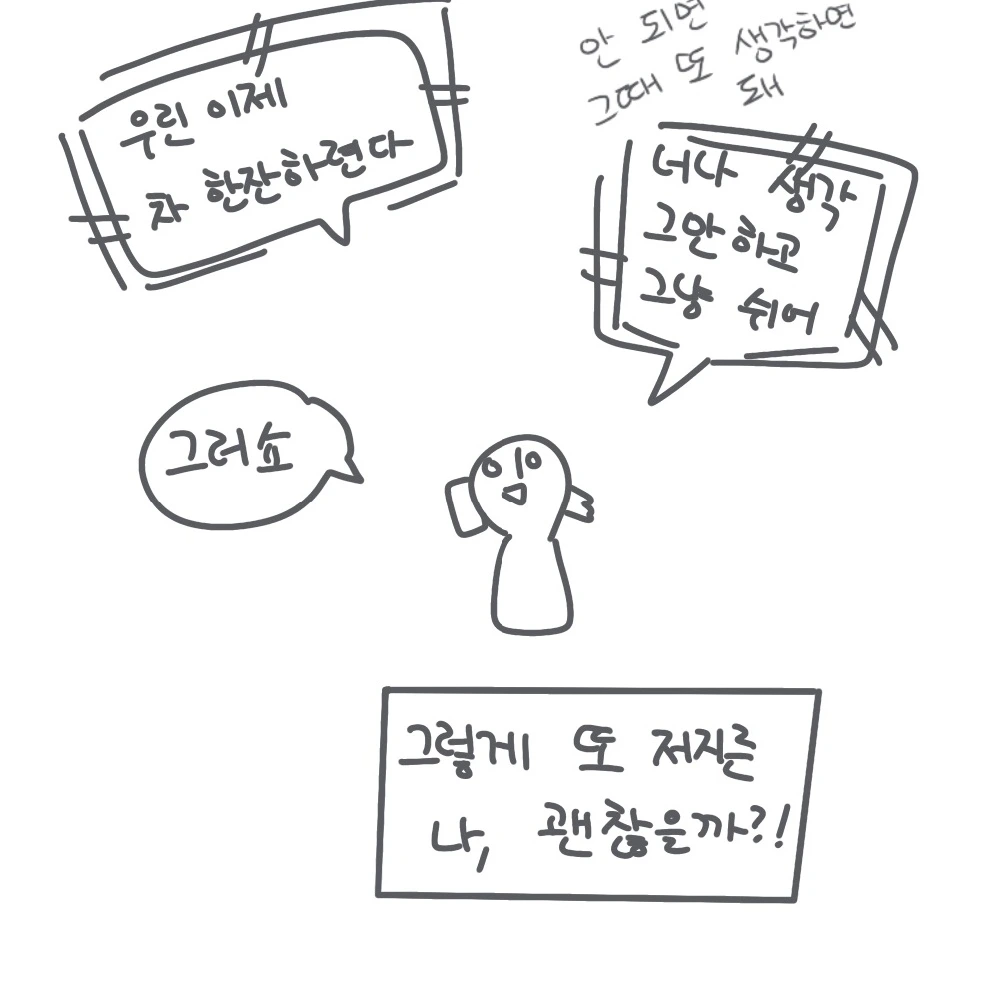 우린 이제
차 한잔하련다
안 되면
그때 또 생각하면
돼
너나 생각
그만하고
그냥 쉬어
그러쇼
그렇게 또 저지른
나, 괜찮을까?!